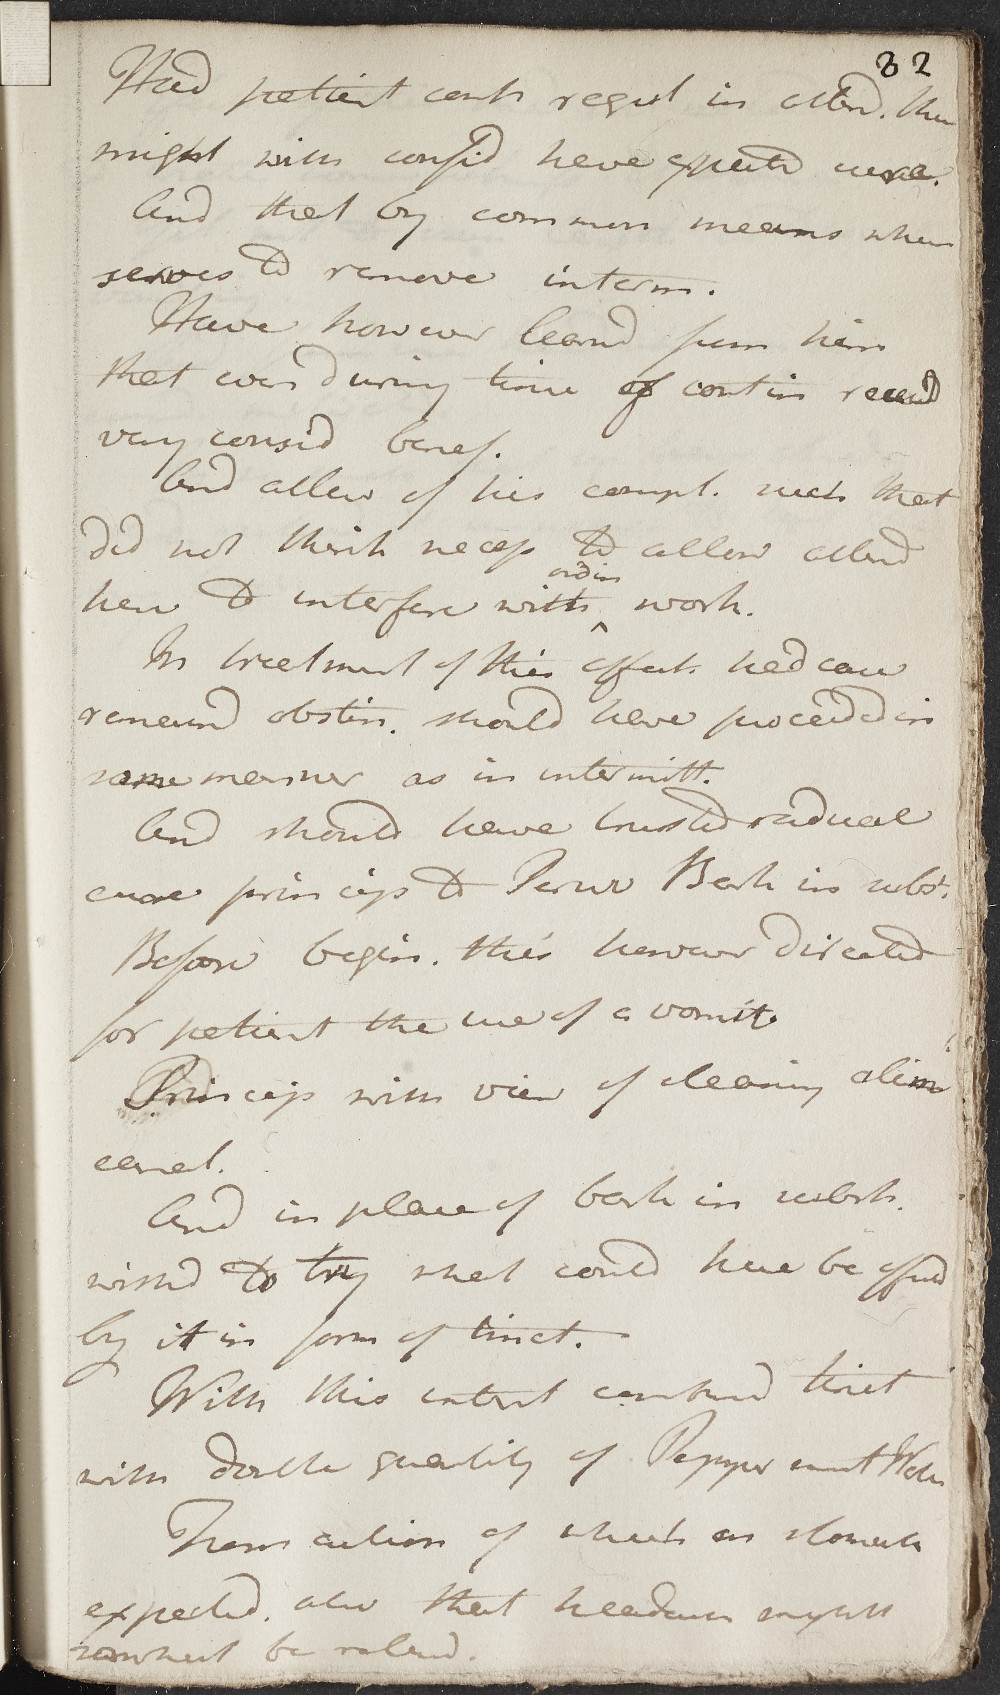 32
Had patient conti regul in attend. then
might with confid have expectd cure.
And that by common means when
serves to remove interm.
Have however learnd from him
that even during time of contin receivd
very consid benef.
And allev of his compl. such that
did not think necess to allow attend
here to interfere with ^ordin work.
In treatment of this affect. had case
remaind obstin. should have proceeded in
same manner as in intermitt.
And should have trusted radical
cure princip to Peruv Bark in subst.
Before begin. this however directed
for patient the use of a vomit.
Princip with view of cleaning alim
canal.
And in place of bark in subst.
wishd to try what could here be effectd
by it in form of tinct.
With this intent combind tinct
with double quantity of Pepper mint Water
From action of which on stomach
expected. also that headach might
somwhat be relievd.